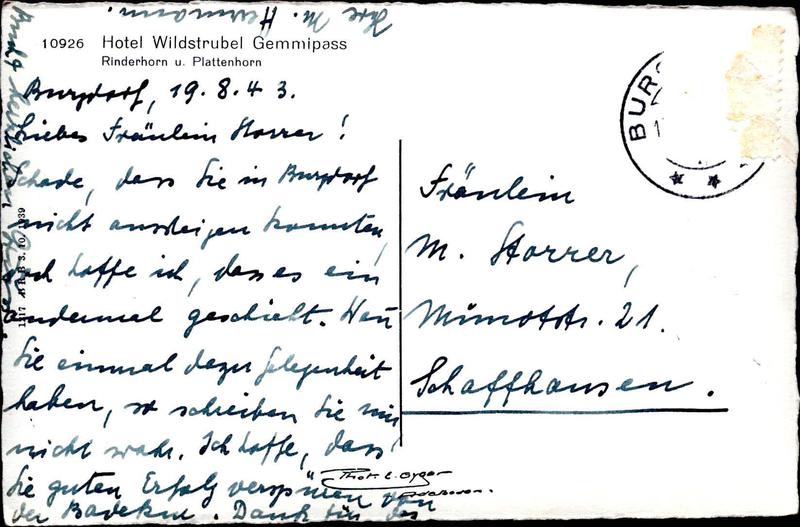 10926 Hotel Wildstrubel Gemmipass
Rinderhorn u. Plattenhorn
Burgdorf, 19.8.43.
Liebes Fräulein Storrer!
Schade, dass Sie in Burgdorf
nicht aussteigen konnten,
doch hoffe ich, dass es ein
andermal geschieht. Wenn
Sie einmal dazu Gelegenheit
haben, so schreiben Sie mir
nicht wahr. Ich hoffe, dass
Sie guten Erfolg verspüren von
der Badekur. Dank für das
und herzlichen
Ihre M. Hermann.
B.R.B. 3.10.1939
Fräulein
M. Storrer,
Schaffhausen.
Phot. E. Gyger
Adelboden.
BUR